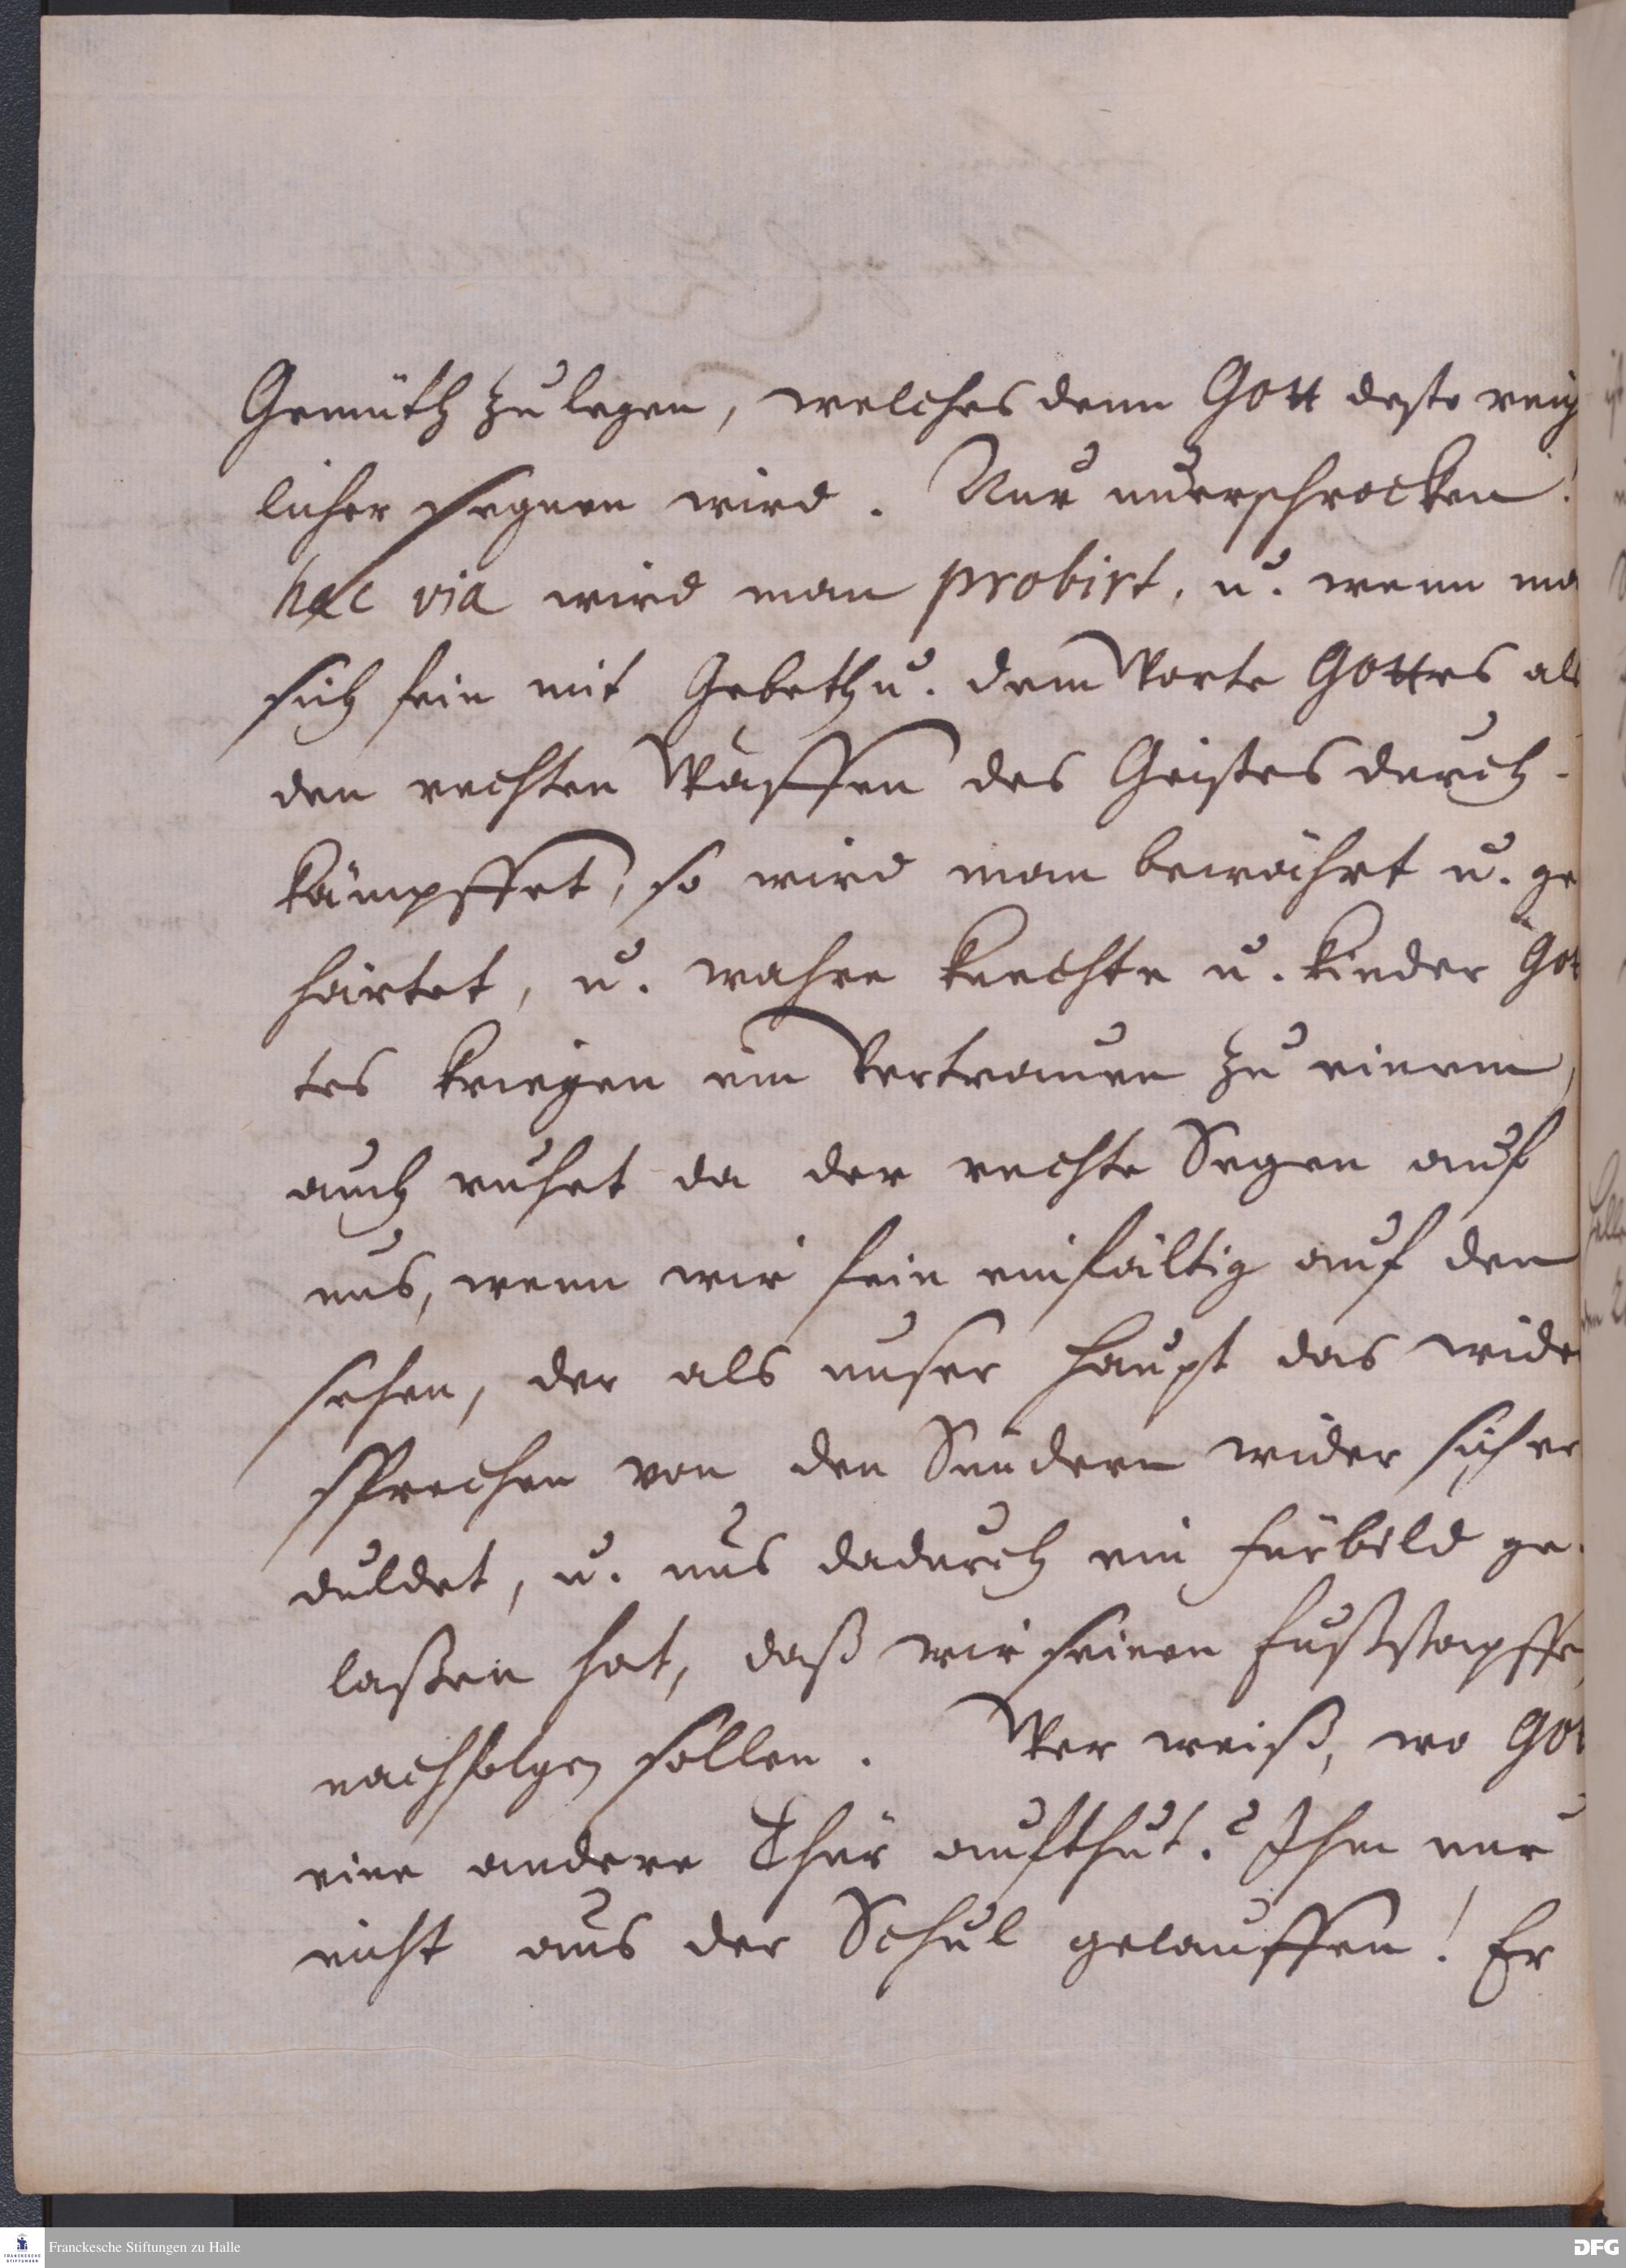 Gemüth zu legen, welches denn Gott desto reich
licher segnen wird. Nur unerschrocken!
hac via wird man probirt, u. wenn ma
sich fein mit Gebeth u. dem Worte Gottes als
den rechten Waffen des Geistes durch-
kämpffet, so wird man bewährt u. ge
härtet, u. wahre Knechte u. Kinder Got
tes kriegen ein Vertrauen zu einem,
auch ruhet da der rechte Segen auf
uns, wenn wir fein einfältig auf den
sehen, der als unser Haupt das wider
sprechen von den Sündern wider sich er
duldet, u. uns dadurch ein Fürbild ge-
laßen hat, daß wir seinen Fußstapffen
nachfolgen sollen. Wer weiß, wo Got
eine andere Thür aufthut? Ihm nur
nicht aus der Schul gelauffen! Er
Franckesche Stiftungen zu Halle
DFG